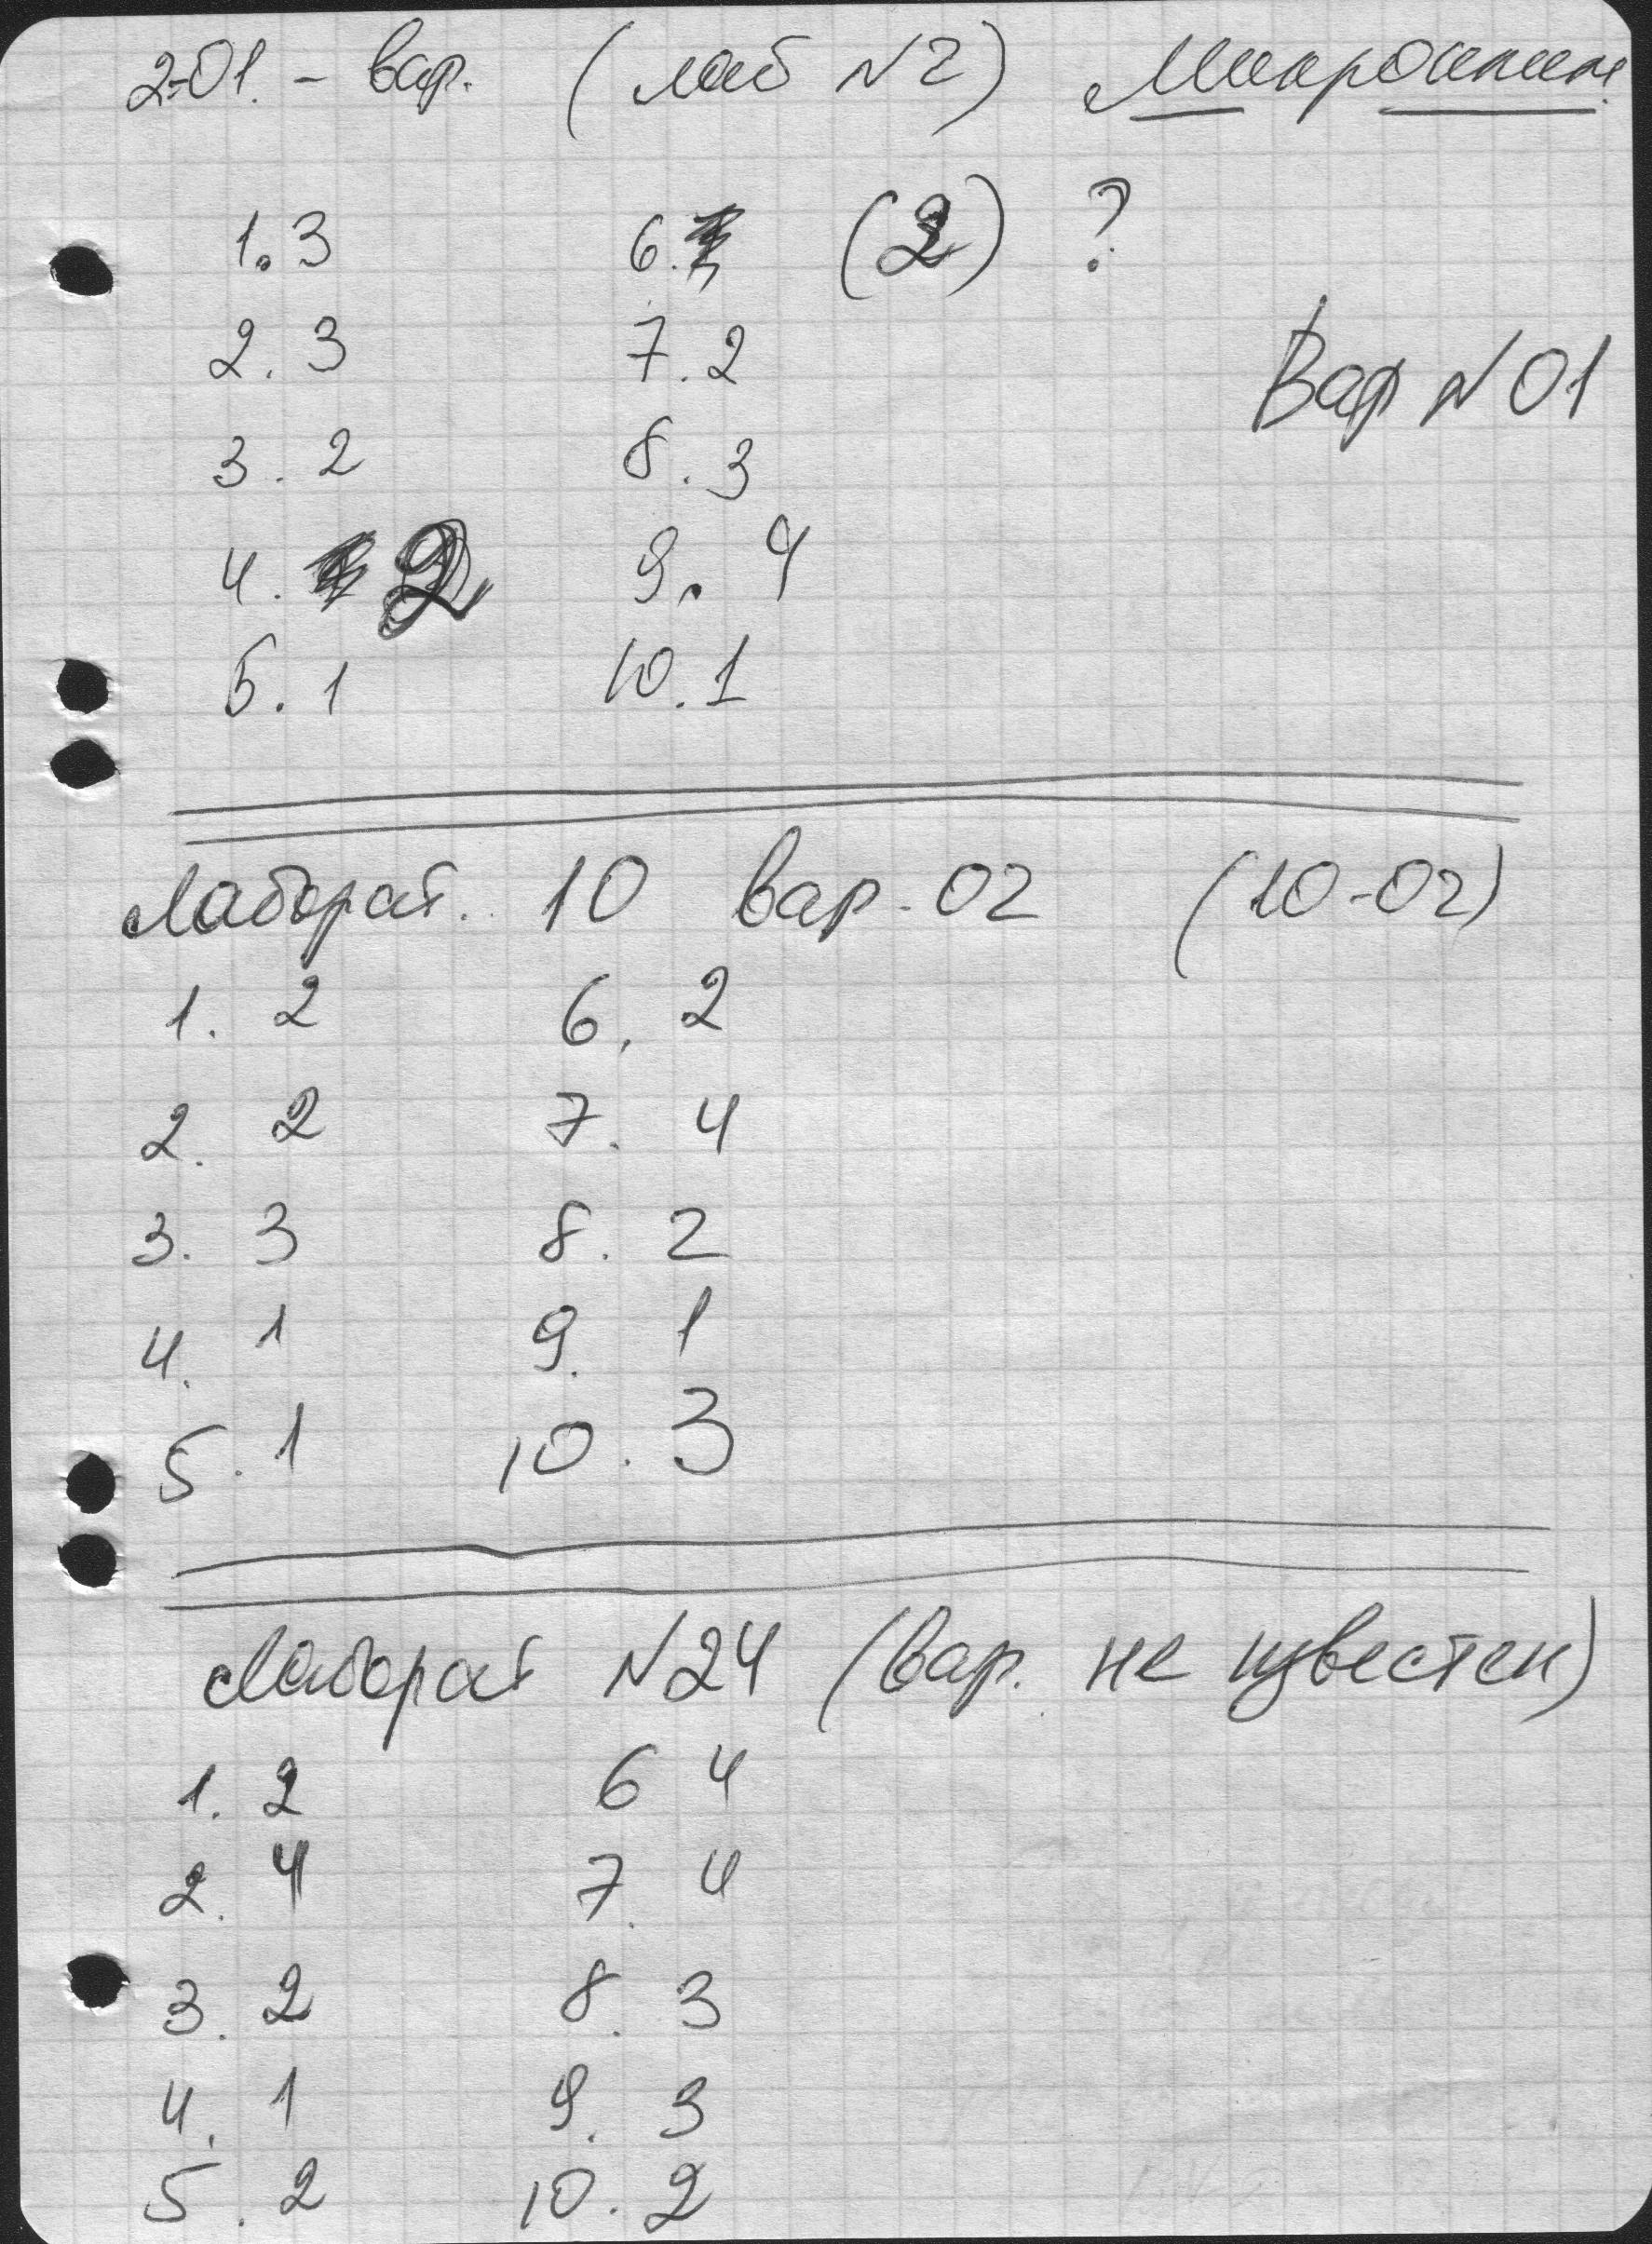 2-01. - вар. (лаб №2)
1. 3 6. (2) ?
2. 3 7. 2
Вар №01
3. 2 8. 3
4. 2 9. 4
5. 1 10. 1
Лаборат. 10 вар. 02 (10-02)
1. 2 6. 2
2. 2 7. 4
3. 3 8. 2
4. 1 9. 1
5. 1 10. 3
Лаборат №24 (вар. не известен)
1. 2 6 4
2. 4 7. 4
3. 2 8. 3
4. 1 9. 3
5. 2 10. 2